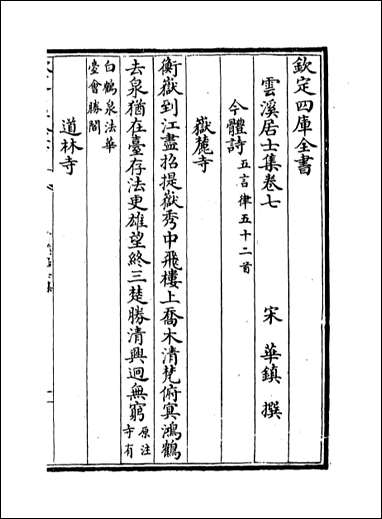 欽定四庫全書
雲溪居士集卷七
宋 華鎮 撰
今體詩 五言律五十二首
嶽麓寺
衡嶽到江盡招提嶽秀中飛樓上喬木清梵俯冥鴻鶴
去泉猶在臺存法更雄望終三楚勝清興迥無窮 原注寺有
白鶴泉法華
臺會勝閣
道林寺